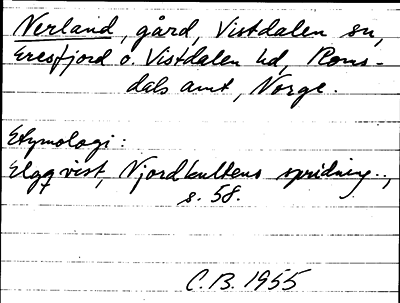 Nerland, gård, Vistdalen sn,
Eresfjord o. Vistdalen hd, Roms-
dals amt, Norge.
Etymologi:
Elgqvist, Njordkultens spridning..,
s. 58.
C.B. 1955